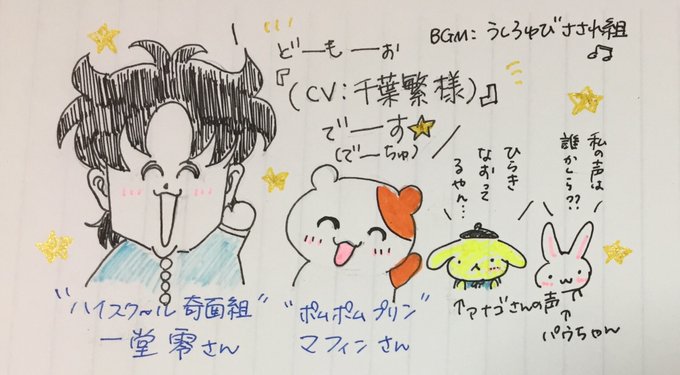 BGM: うしろゆびさされ組
どーもーぉ
『(CV:千葉繁様)』
でーす
(でーちゅ)
ひらき
なおって
るやん…
私の声は
誰かしら??
"ハイスクール奇面組"
一堂零さん
"ポムポムプリン"
マフィンさん
↑アナゴさんの声
↑
パウちゃん